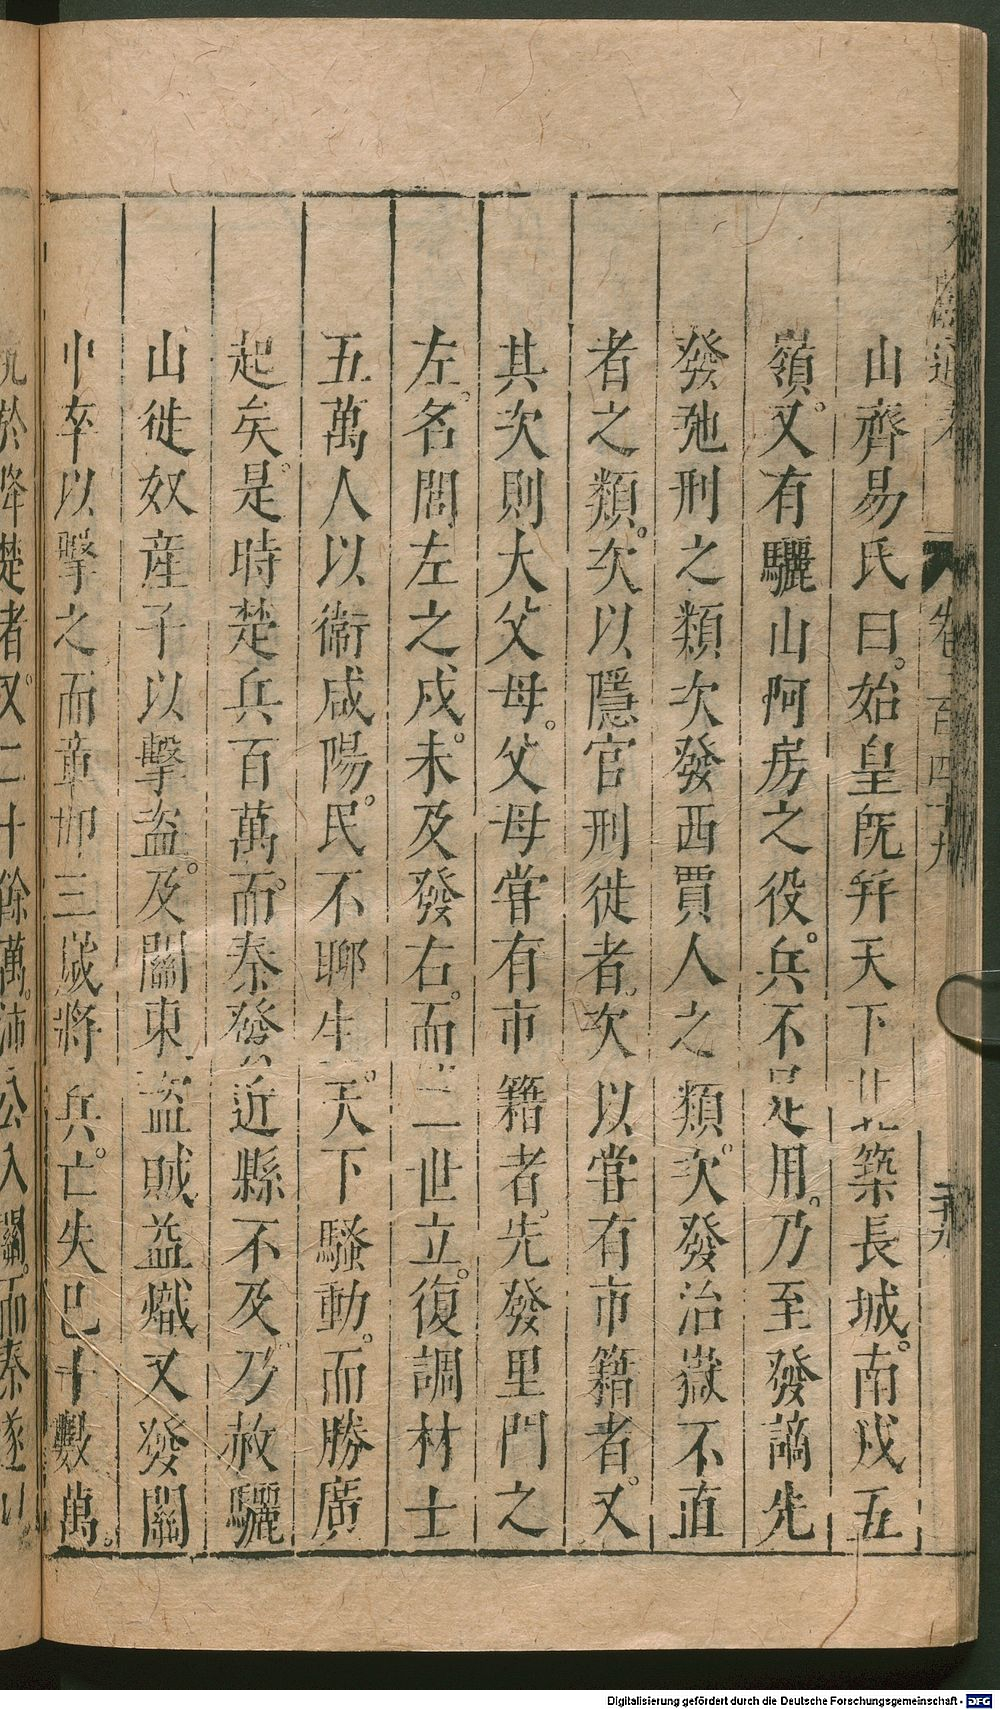 卷一百四十九
山齊易氏曰。始皇既并天下北築長城。南戍五
嶺。又有驪山阿房之役。兵不足用。乃至發謫先
發弛刑之類次發西賈人之類。次發治嶽不直
者之類。次以隱官刑徒者。次以甞有市籍者。又
其次則大父母。父母甞有市籍者。先發里門之
左。名閭左之戍。未及發右。而二世立。復調材士
五萬人以衛咸陽。民不聊生。天下騷動。而勝廣
起矣。是時楚兵百萬。而秦發近縣不及。乃赦驪
山徙奴産子以擊盜。及關東盜賊益熾又發關
中卒以擊之而章邯三歲將兵。亡失巳十數萬。
於降楚者。又二十餘萬。沛公入關。而秦遂以
Digitalisierung gefördert durch die Deutsche Forschungsgemeinschaft - DFG